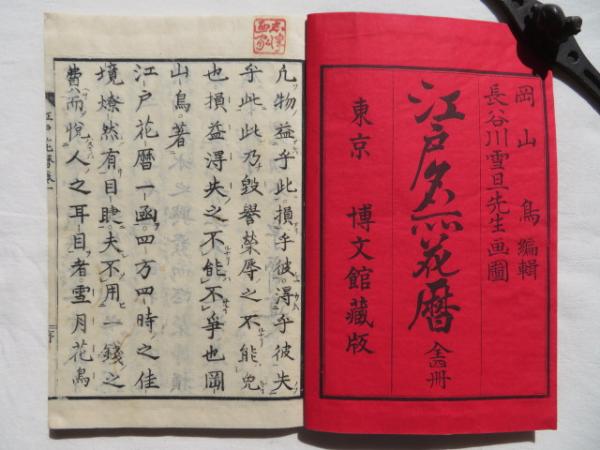 岡山鳥編輯
長谷川雪旦先生画圖
江戸名所花暦 全四冊
東京 博文館藏版
凡物益乎此損乎彼得乎彼失
乎此此乃毀譽榮辱之不能免
也損益得失之不能不爭也岡
山鳥著
江戸花暦一函四方四時之佳
境燎然有目睫夫不用一錢之
費而悅人之耳目者雪月花鳥